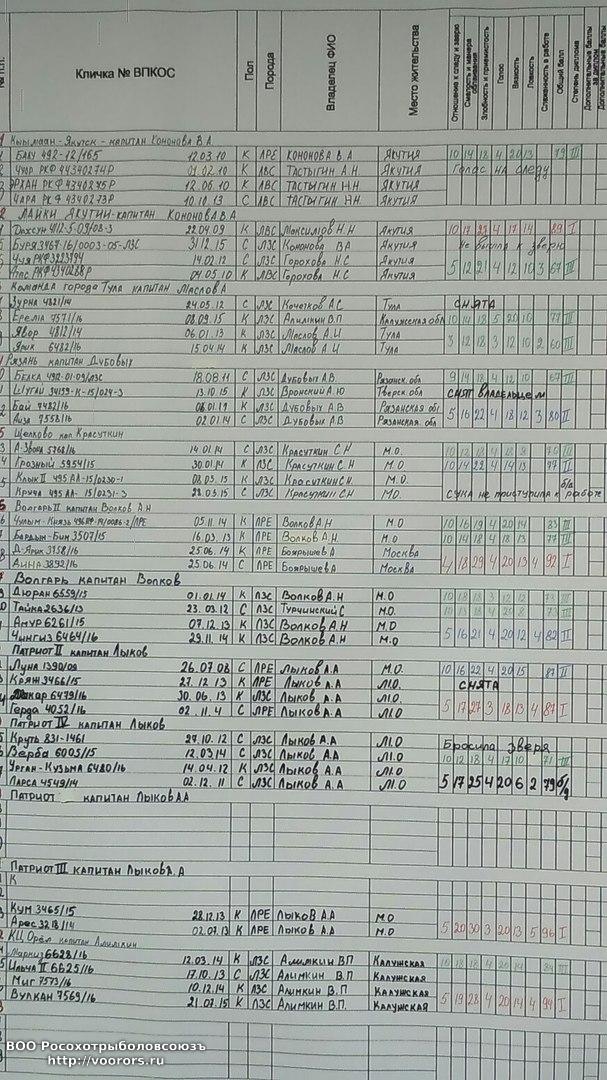 № п.п.
Кличка № ВПКОС
Пол
Порода
Владелец ФИО
Место жительства
Отношение к следу и зверю
Смелость и манера облаивания
Злобность и приемистость
Голос
Вязкость
Ловкость
Слаженность в работе
Общий балл
Степень диплома
Дополнительные баллы
Кыымаан - Якутск - капитан Кононова В А
Баку 492-12/165 12.03.10 К ЛРЕ Кононова В.А Якутия 10 14 18 4 20 13 79 III
РКФ 4340274Р 01.02.10 К ЛВС Тастыгин А.Н Якутия Голос на следу
РКФ 4340245Р 12.06.10 К ЛВС Тастыгин Н.Н Якутия
Чара РКФ 4340273Р 10.10.13 С ЛВС Тастыгин Н.Н Якутия
2 Лайки Якутии-капитан Кононова В.А
22.04.09 К ЛВС Максимов Н.Н Якутия 10 17 27 4 17 14 89 I
Буря 3467-16/0003-05-ЛЗС 31.12.15 С ЛЗС Кононова В.А Якутия Не вышла к зверю
РКФ 3223794 14.02.12 С ЛЗС Горохова Н.С Якутия
РКФ 4340288Р 04.05.10 К ЛВС Горохова Н.С Якутия 5 12 21 4 12 10 3 67 III
Команда города Тула капитан Маслов А
Зурна 4821/14 24.05.12 С ЛЗС Кочетков А.С Тула СНЯТА
7571/16 08.09.15 К ЛЗС Алимкин В.П Калужская обл 10 14 18 5 20 10 77 III
Явор 4812/14 06.01.13 К ЛЗС Маслов А.И Тула
6482/16 15.04.14 К ЛЗС Маслов А.И Тула 3 12 18 3 12 10 2 60 III
Рязань капитан Дубовых
Белка 492-01-09/ЛЗС 18.08.11 С ЛЗС Дубовых А.В. Рязанск.обл 9 14 18 4 12 10 67 III
Шугай 34159-К-15/024-3 13.10.15 К ЛЗС Вронский А.Ю Тверск.обл СНЯТ Владельцем
Бай 7482/16 К ЛЗС Дубовых А.В Рязанская обл
7558/16 02.01.14 С ЛЗС Дубовых А.В Рязанская обл. 5 16 22 4 18 12 3 80 II
5 Щелково кап Красуткин
5768/16 14.01.14 С ЛЗС Красуткин С.Н М.О.
Грозный 5954/15 30.01.14 К ЛЗС Красуткин С.Н М.О 10 14 22 4 14 13 77 II
Клык II 495АА-15/0230-1 02.03.15 К ЛЗС Красуткин С.Н М.О.
Круча 495АА-15/0231-3 22.03.15 С ЛЗС Красуткин С.Н МО. Сука не приступила к работе
Волгарь II капитан Волков А Н
Чулым-Князь 05.11.14 К ЛРЕ Волков А.Н М.О 10 16 19 4 20 14 83 III
Бардым-Бим 3507/15 16.03.13 К ЛРЕ Волков А.Н. М.О 10 14 18 4 18 13 77 III
Д-Ярик 3758/16 25.06.14 К ЛРЕ Боярышев А Москва
Аина 3892/16 25.06.14 С ЛРЕ Боярышев А Москва 4 18 29 4 20 13 4 92 I
Волгарь капитан Волков
Дюран 6559/15 01.01.14 К ЛЗС Волков А.Н М.О
Тайка 2636/13 23.03.12 С ЛЗС Турчинский С
Амур 6261/15 07.12.13 К ЛЗС Волков А.Н М.О
Чингиз 6464/16 29.11.14 К ЛЗС Волков А.Н М.О 5 16 21 4 20 12 4 82 II
Патриот II капитан Лыков
Луна 1390/09 26.07.08 С ЛРЕ Лыков А.А М.О. 10 16 22 4 20 15 87 II
Кряж 3466/15 27.12.13 К ЛРЕ Лыков А.А М.О. СНЯТА
6479/16 30.06.13 К ЛЗС Лыков А.А М.О.
Герда 4052/16 02.11.4 С ЛРЕ Лыков А.А М.О. 5 17 27 3 18 13 4 87 I
Патриот IV капитан Лыков
Круть 831-1461 27.10.12 С ЛЗС Лыков А.А М.О Бросила зверя
Верба 6005/15 12.03.14 С ЛЗС Лыков А.А М.О 10 12 18 4 17 10 71 III
Урган-Кузьма 6480/16 14.04.12 К ЛЗС Лыков А.А М.О
Ларса 4549/14 02.12.11 С ЛЗС Лыков А.А М.О 5 17 25 4 20 6 2 79 б/д
Патриот капитан Лыков АА
Патриот III капитан Лыков.А
К
Кум 3465/15 28.12.13 К ЛРЕ Лыков А.А М.О
Арес 3213/14 02.07.13 К ЛРЕ Лыков А.А М.О 5 20 30 3 20 13 5 96 I
КЦ Орёл капитан Алимкин
6628/16 12.03.14 К ЛЗС Алимкин В.П Калужская
Ильча II 6625/16 17.10.13 С ЛЗС Алимкин В.П Калужская
Миг 7573/16 10.12.14 К ЛЗС Алимкин В.П Калужская
Вулкан 7569/16 21.07.15 К ЛЗС Алимкин В.П. Калужская 5 19 28 4 20 14 4 94 I
ВОО Росохотрыболовсоюзъ
http://voorors.ru